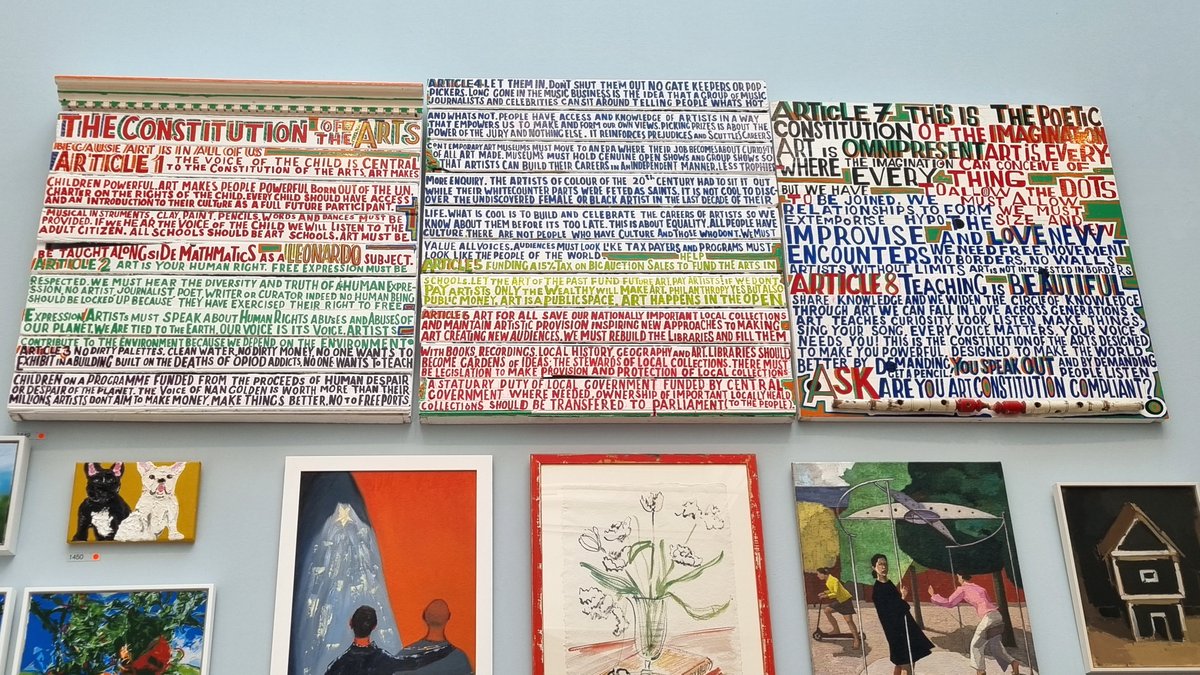 THE CONSTITUTION OF THE ARTS
BECAUSE ART IS IN ALL OF US
ARTICLE 1 THE VOICE OF THE CHILD IS CENTRAL
TO THE CONSTITUTION OF THE ARTS, ART MAKES
CHILDREN POWERFUL, ART MAKES PEOPLE POWERFUL BORN OUT OF THE U.N.
CHARTER ON THE RIGHTS OF THE CHILD, EVERY CHILD SHOULD HAVE ACCESS
AND AN INTRODUCTION TO THEIR CULTURE AS A FULL FUTURE PARTICIPANT.
MUSICAL INSTRUMENTS, CLAY, PAINT, PENCILS, WORDS AND DANCES MUST BE
PROVIDED, IF WE HEAR THE VOICE OF THE CHILD WE WILL LISTEN TO THE
ADULT CITIZEN. ALL SCHOOLS SHOULD BE ART SCHOOLS, ART MUST BE
BE TAUGHT ALONGSIDE MATHMATICS AS A LEONARDO SUBJECT.
ARTICLE 2 ART IS YOUR HUMAN RIGHT. FREE EXPRESSION MUST BE
RESPECTED. WE MUST HEAR THE DIVERSITY AND TRUTH OF HUMAN EXPRE-
SSION, NO ARTIST JOURNALIST POET, WRITER OR CURATOR INDEED NO HUMAN BEING
SHOULD BE LOCKED UP BECAUSE THEY HAVE EXERCISED THEIR RIGHT TO FREE
EXPRESSION ARTISTS MUST SPEAK ABOUT HUMAN RIGHTS ABUSES AND ABUSES OF
OUR PLANET. WE ARE TIED TO THE EARTH, OUR VOICE IS ITS VOICE, ARTISTS
CONTRIBUTE TO THE ENVIRONMENT BECAUSE WE DEPEND ON THE ENVIRONMENT
ARTICLE 3 NO DIRTY PALETTES, CLEAN WATER, NO DIRTY MONEY, NO ONE WANTS TO
EXHIBIT IN A BUILDING BUILT ON THE DEATHS OF OPIOD ADDICTS, NO ONE WANTS TO TEACH
CHILDREN ON A PROGRAMME FUNDED FROM THE PROCEEDS OF HUMAN DESPAIR
OR DESPAIR OF THE PLANET, THE VOICE OF NAN GOLDEN IS WORTH MORE THAN THEIR
MILLIONS, ARTISTS DONT AIM TO MAKE MONEY, MAKE THINGS BETTER, NO TO FREEPORTS
ARTICLE 4 LET THEM IN, DONT SHUT THEM OUT NO GATE KEEPERS OR POP-
PICKERS. LONG GONE IN THE MUSIC BUSINESS IS THE IDEA THAT A GROUP OF MUSIC
JOURNALISTS AND CELEBRITIES CAN SIT AROUND TELLING PEOPLE WHATS HOT
AND WHATS NOT. PEOPLE HAVE ACCESS AND KNOWLEDGE OF ARTISTS IN A WAY
THAT EMPOWERS US TO MAKE AND FORM OUR OWN VIEWS. PICKING PRIZES IS ABOUT THE
POWER OF THE JURY AND NOTHING ELSE. IT REINFORCES PREJUDICES AND SCUTTLES CAREERS.
CONTEMPORARY ART MUSEUMS MUST MOVE TO AN ERA WHERE THEIR JOB BECOMES ABOUT CURIOSITY
OF ALL ART MADE. MUSEUMS MUST HOLD GENUINE OPEN SHOWS AND GROUP SHOWS SO
THAT ARTISTS CAN BUILD THEIR CAREERS IN AN INDEPENDENT MANNER, LESS TROPHIES
MORE ENQUIRY. THE ARTISTS OF COLOUR OF THE 20TH CENTURY HAD TO SIT IT OUT
WHILE THEIR WHITE COUNTER PARTS WERE FETED AS SAINTS. IT IS NOT COOL TO DISC-
OVER THE UNDISCOVERED FEMALE OR BLACK ARTIST IN THE LAST DECADE OF THEIR
LIFE. WHAT IS COOL IS TO BUILD AND CELEBRATE THE CAREERS OF ARTISTS SO WE
KNOW ABOUT THEM BEFORE ITS TOO LATE. THIS IS ABOUT EQUALITY. ALL PEOPLE HAVE
CULTURE. THERE ARE NOT PEOPLE WHO HAVE CULTURE AND THOSE WHO DONT. WE MUST
VALUE ALL VOICES, AUDIENCES MUST LOOK LIKE TAX PAYERS AND PROGRAMS MUST
LOOK LIKE THE PEOPLE OF THE WORLD HELP
ARTICLE 5 FUNDING A 15% TAX ON BIG AUCTION SALES TO FUND THE ARTS IN
SCHOOLS. LET THE ART OF THE PAST FUND FUTURE ART. PAY ARTISTS IF WE DON'T
PAY ARTISTS ONLY THE WEALTHY WILL MAKE ART. PHILANTHROPY YES BUT ALSO
PUBLIC MONEY, ART IS A PUBLIC SPACE, ART HAPPENS IN THE OPEN
ARTICLE 6 ART FOR ALL SAVE OUR NATIONALLY IMPORTANT LOCAL COLLECTIONS
AND MAINTAIN ARTISTIC PROVISION INSPIRING NEW APPROACHES TO MAKING
ART CREATING NEW AUDIENCES, WE MUST REBUILD THE LIBRARIES AND FILL THEM
WITH BOOKS, RECORDINGS, LOCAL HISTORY, GEOGRAPHY AND ART. LIBRARIES SHOULD
BECOME GARDENS OF IDEAS, THE STEWARDS OF LOCAL COLLECTIONS. THERE MUST
BE LEGISLATION TO MAKE PROVISION AND PROTECTION OF LOCAL COLLECTIONS
A STATUARY DUTY OF LOCAL GOVERNMENT FUNDED BY CENTRAL
GOVERNMENT WHERE NEEDED, OWNERSHIP OF IMPORTANT LOCALLY HEALD
COLLECTIONS SHOULD BE TRANSFERED TO PARLIAMENT (TO THE PEOPLE).
ARTICLE 7 THIS IS THE POETIC
CONSTITUTION OF THE IMAGINATION
ART IS OMNIPRESENT ART IS EVERY
WHERE THE IMAGINATION CAN CONCEIVE OF
EVERY THING
BUT WE HAVE TO ALLOW THE DOTS
TO BE JOINED, WE MUST ALLOW
RELATIONSHIPS TO FORM WE MUST
EXTEMPORISE HYPOTHESIZE
IMPROVISE AND LOVE NEW
ENCOUNTERS WE NEED FREE MOVEMENT
NO BORDERS, NO WALLS
ARTISTS WITHOUT LIMITS ART IS NOT INTERESTED IN BORDERS
ARTICLE 8 TEACHING IS BEAUTIFUL
SHARE KNOWLEDGE AND WE WIDEN THE CIRCLE OF KNOWLEDGE
THROUGH ART WE CAN FALL IN LOVE ACROSS GENERATIONS,
ART TEACHES CURIOSITY, LOOK, LISTEN, MAKE THINGS,
SING YOUR SONG, EVERY VOICE MATTERS, YOUR VOICE
NEEDS YOU! THIS IS THE CONSTITUTION OF THE ARTS DESIGNED
TO MAKE YOU POWERFUL, DESIGNED TO MAKE THE WORLD
BETTER BY DEMANDING YOU SPEAK OUT AND BY DEMANDING
GET A PENCIL PEOPLE LISTEN
ASK ARE YOU ART CONSTITUTION COMPLIANT?
1450